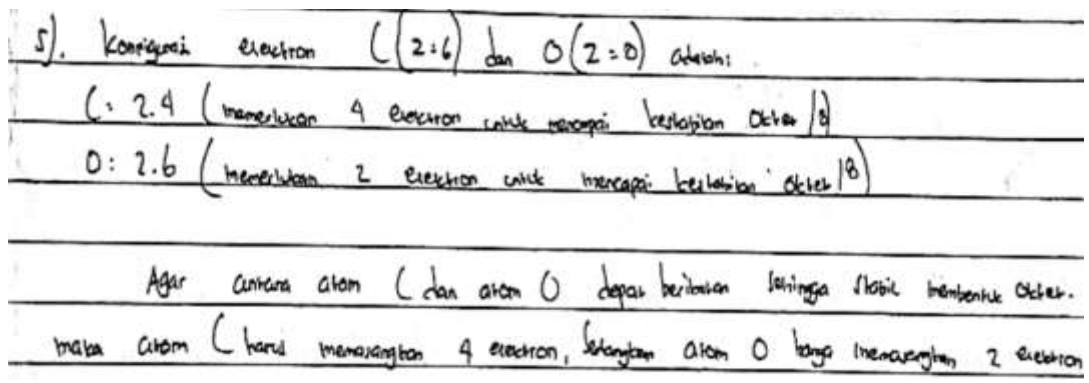 5). Konfigurasi elektron C (Z=6) dan O (Z=8) adalah:
C: 2.4 (memerlukan 4 elektron untuk mencapai kestabilan Oktet / 8)
O: 2.6 (memerlukan 2 elektron untuk mencapai kestabilan Oktet / 8)
Agar antara atom C dan atom O dapat berikatan sehingga stabil membentuk Oktet.
maka atom C harus memasangkan 4 elektron, sedangkan atom O hanya memasangkan 2 elektron